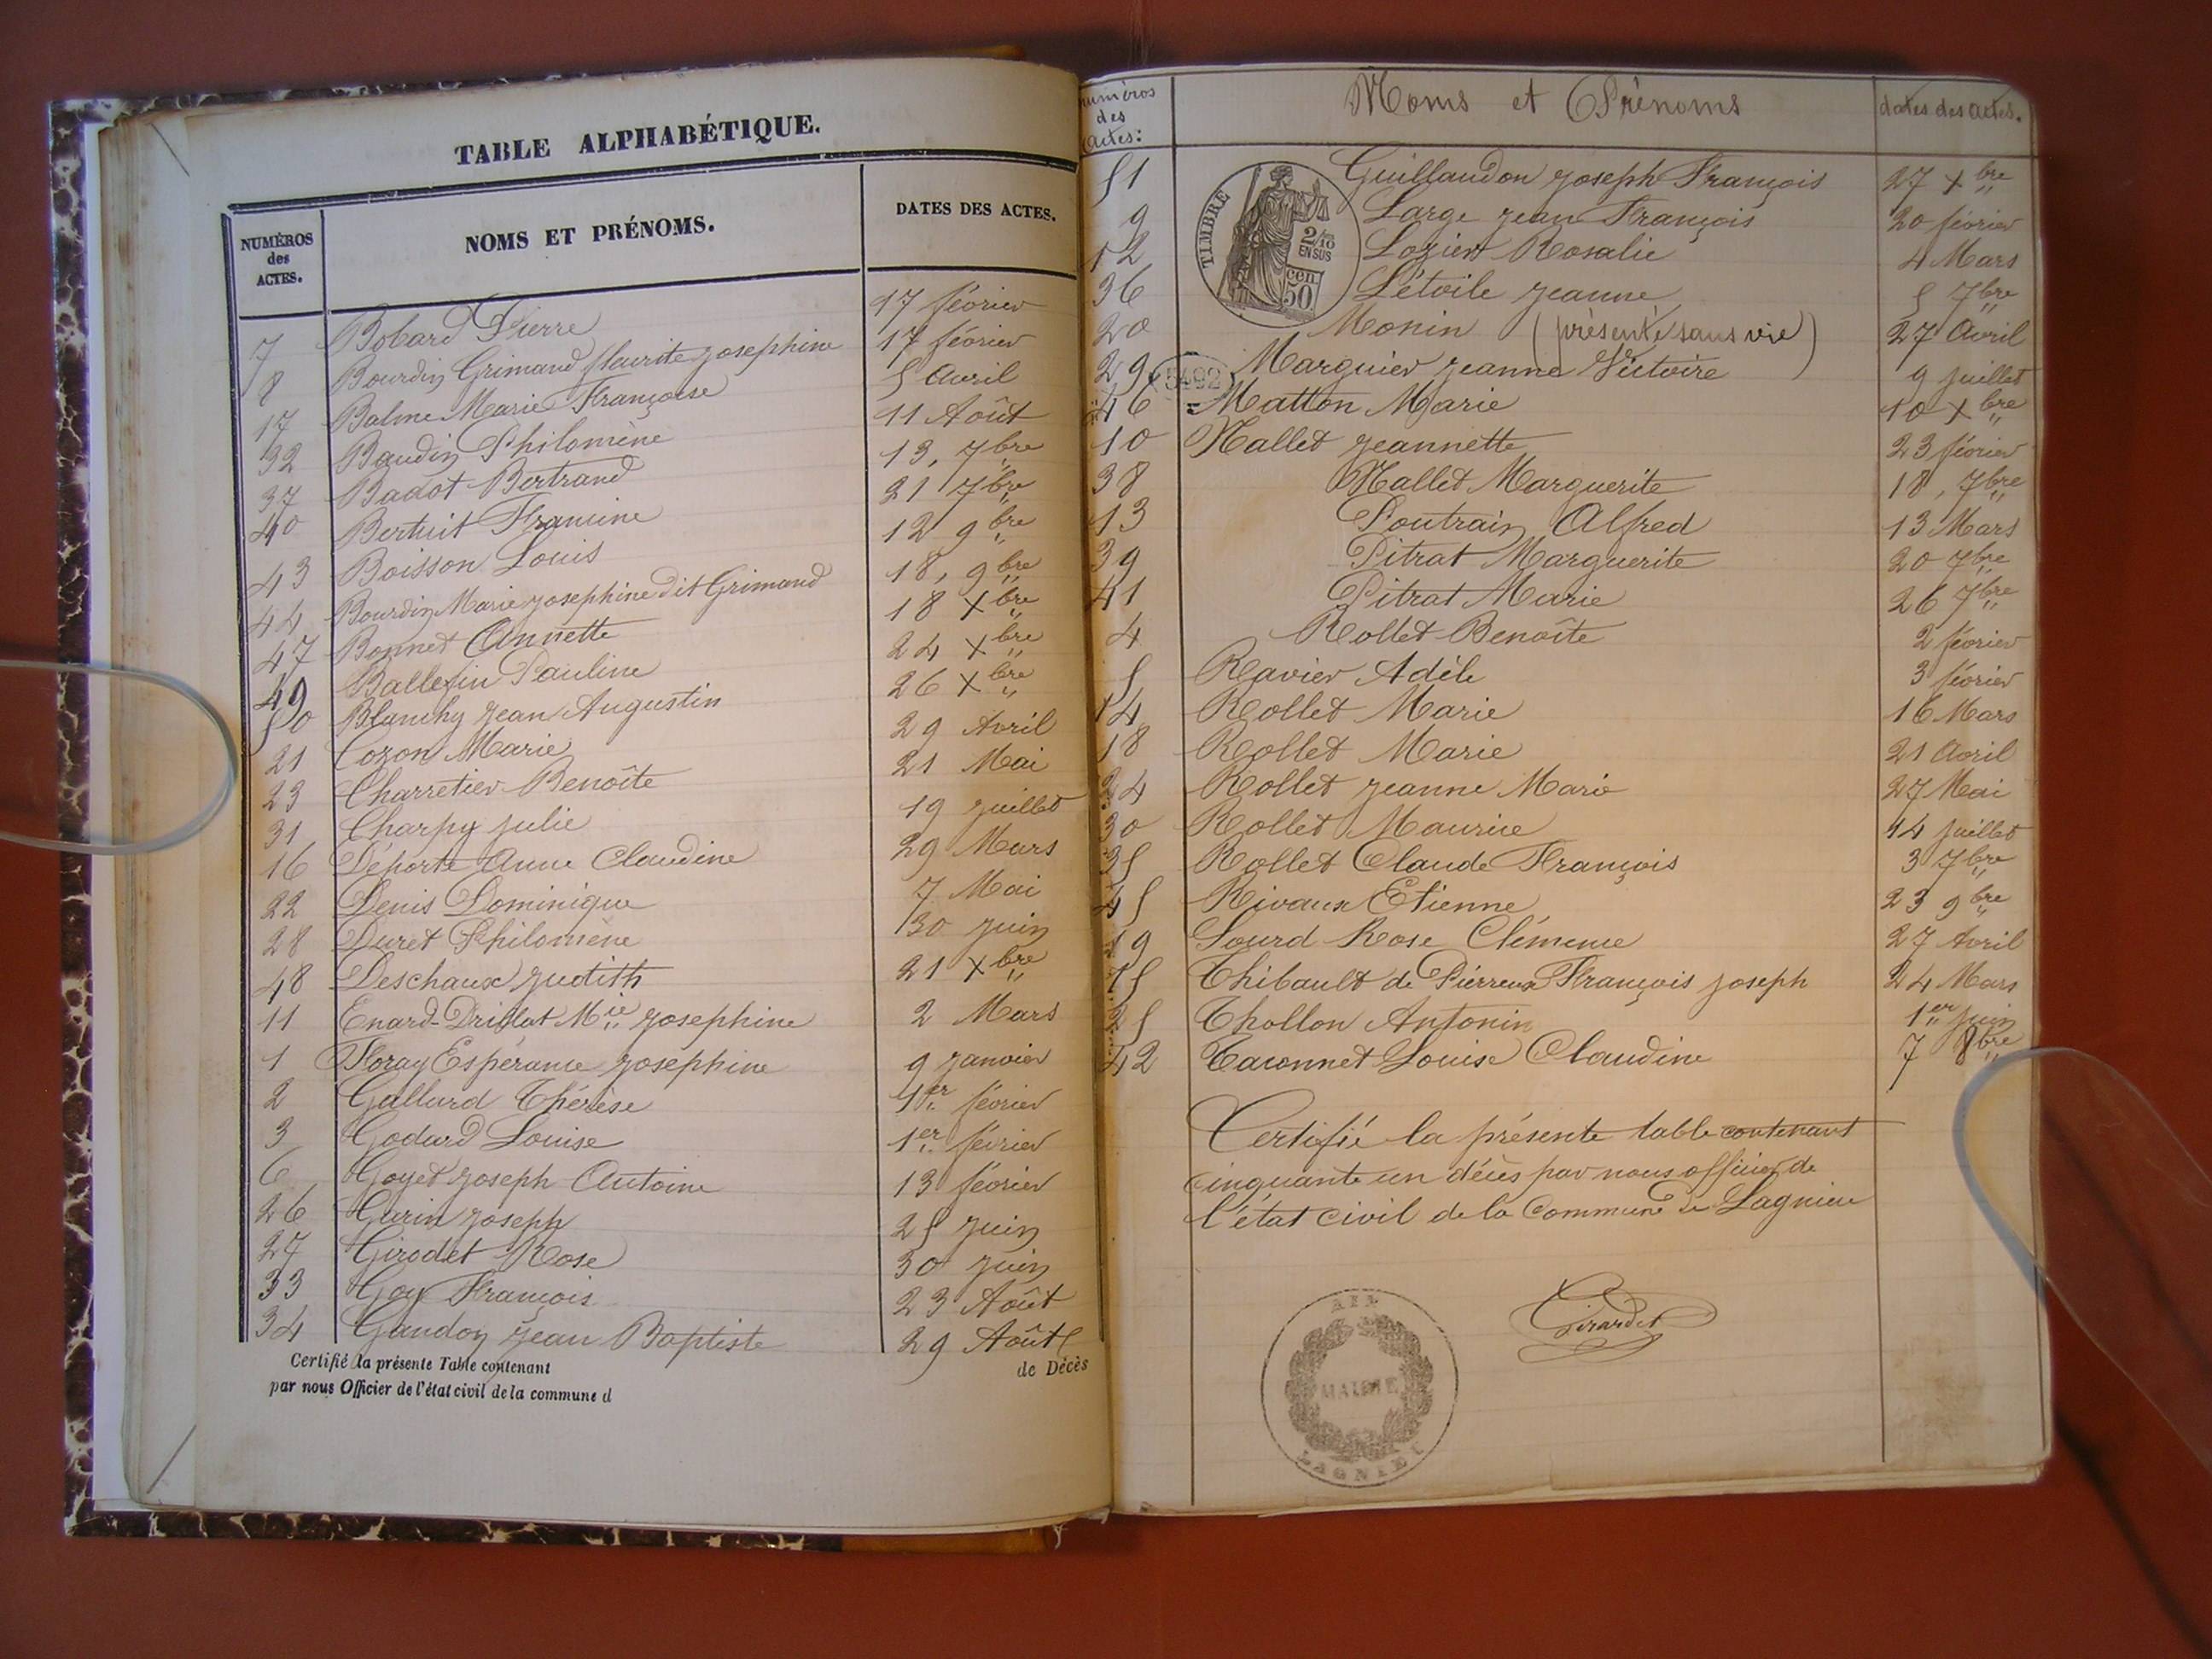 TABLE ALPHABÉTIQUE.
NUMÉROS des ACTES. NOMS ET PRÉNOMS. DATES DES ACTES.
7 Bobard Pierre 17 février
8 Bourdin Grimaud fleurite josephine 17 février
17 Balme Marie Françoise 5 Avril
32 Baudin Philomène 11 Août
37 Badot Bertrand 13, 7bre
40 Bertuit Francine 21 7bre
43 Boisson Louis 12 9bre
44 Bourdin Marie josephine dit Grimaud 18, 9bre
47 Bonnet Annette 18 Xbre
49 Ballefin Pauline 24 Xbre
50 Blanchy jean Augustin 26 Xbre
21 Cozon Marie 29 Avril
23 Charretier Benoîte 21 Mai
31 Charpy julie 19 juillet
16 Déporte Anne Claudine 29 Mars
22 Denis Dominique 7 Mai
28 Duret Philomène 30 juin
48 Deschaux judith 21 Xbre
11 Enard-Drillat Mie josephine 2 Mars
1 Floray Espérance josephine 9 janvier
2 Gallard Thérèse 1er février
3 Godard Louise 1er février
6 Goyet joseph Antoine 13 février
26 Gurin joseph 25 juin
27 Girodet Rose 30 juin
33 Goy François 23 Août
34 Gaudon jean Baptiste 29 Août
Certifié la présente Table contenant de Décès
par nous Officier de l'état civil de la commune d
numéros des actes: Noms et Prénoms dates des actes.
TIMBRE
2/10 EN SUS
50 cen
5492
51 Guillaudon joseph François 27 Xbre
9 Large jean François 20 février
12 Lozier Rosalie 4 Mars
36 L'étoile jeanne 5 7bre
20 Monin (présenté sans vie) 27 Avril
29 Marguier jeanne Victoire 9 juillet
46 Matton Marie 10 Xbre
10 Nallet jeannette 23 février
38 Nallet Marguerite 18, 7bre
13 Poutrain Alfred 13 Mars
39 Pitrat Marguerite 20 7bre
41 Pitrat Marie 26 7bre
4 Rollet Benoîte 2 février
5 Ravier Adèle 3 février
14 Rollet Marie 16 Mars
18 Rollet Marie 21 Avril
24 Rollet jeanne Marie 27 Mai
30 Rollet Maurice 14 juillet
35 Rollet Claude François 3 7bre
45 Rivaux Etienne 23 9bre
19 Sourd Rose Clémence 27 Avril
15 Thibault de Pierreux François joseph 24 Mars
25 Thollon Antonin 1er juin
42 Taconnet Louise Claudine 7 8bre
Certifié la présente table contenant
cinquante un décès par nous officier de
l'état civil de la Commune de Lagnieu
Girardet
AIN
MAIRIE
LAGNIEU